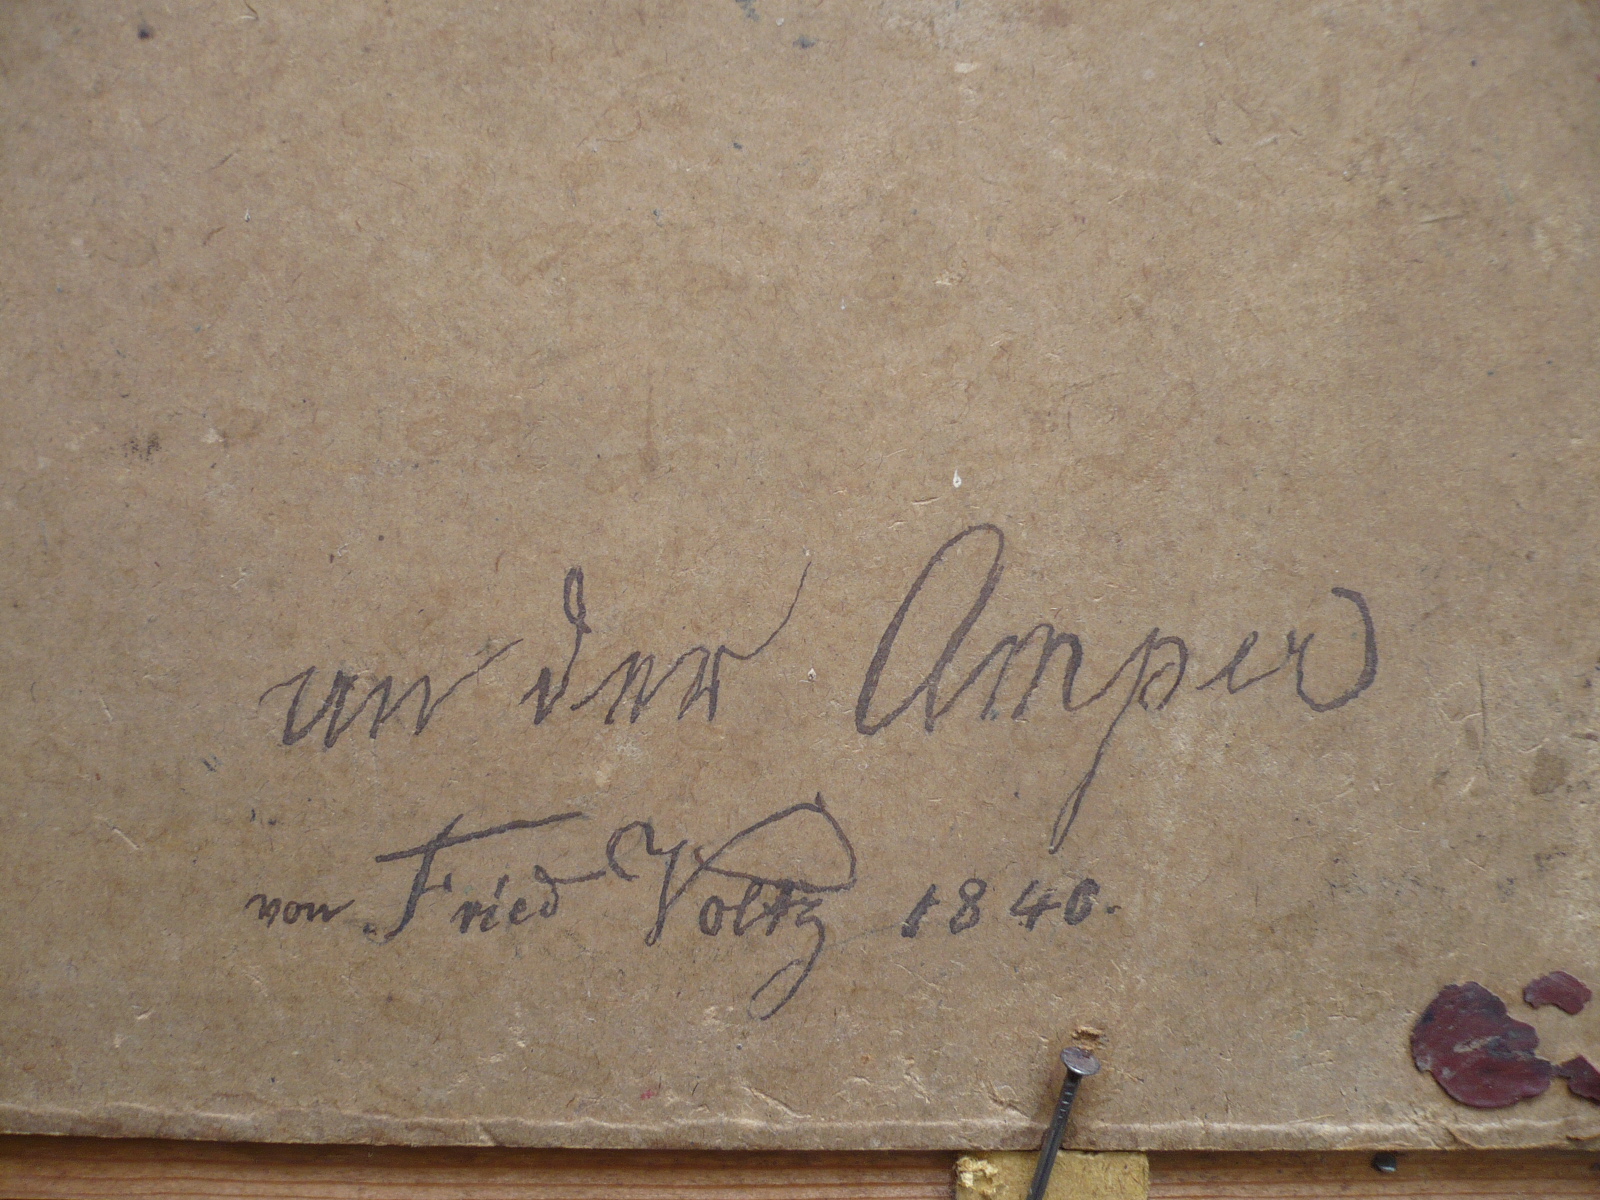 an der Amper
von Fried Voltz 1846.